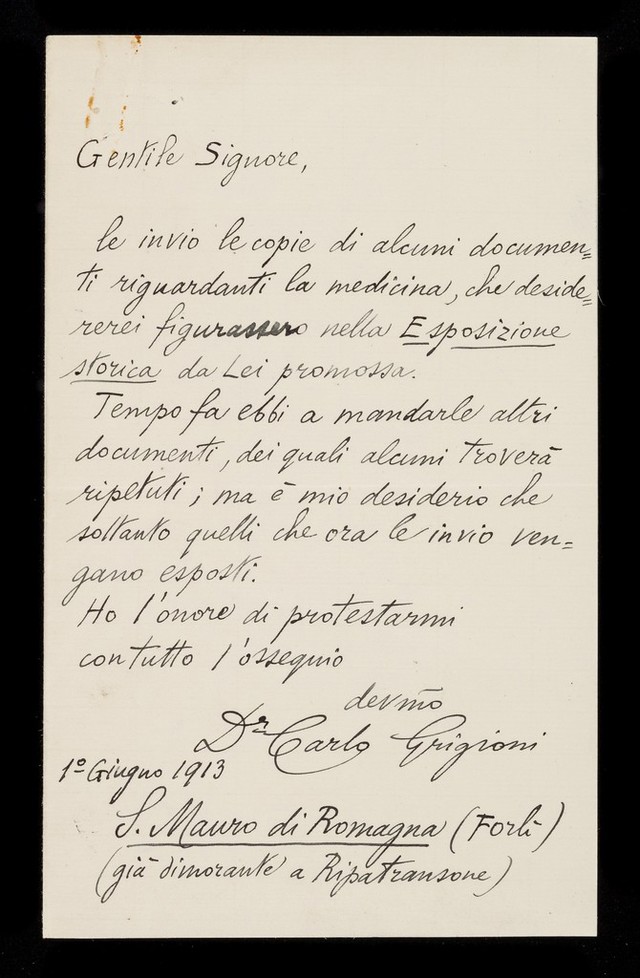 Gentile Signore,
le invio le copie di alcuni documen=
ti riguardanti la medicina, che deside=
rerei figurassero nella Esposizione
storica da Lei promossa.
Tempo fa ebbi a mandarle altri
documenti, dei quali alcuni troverà
ripetuti; ma è mio desiderio che
soltanto quelli che ora le invio ven=
gano esposti.
Ho l'onore di protestarmi
con tutto l'ossequio
devmo
Dr Carlo Grigioni
1º Giugno 1913
S. Mauro di Romagna (Forlì)
(già dimorante a Ripatransone)